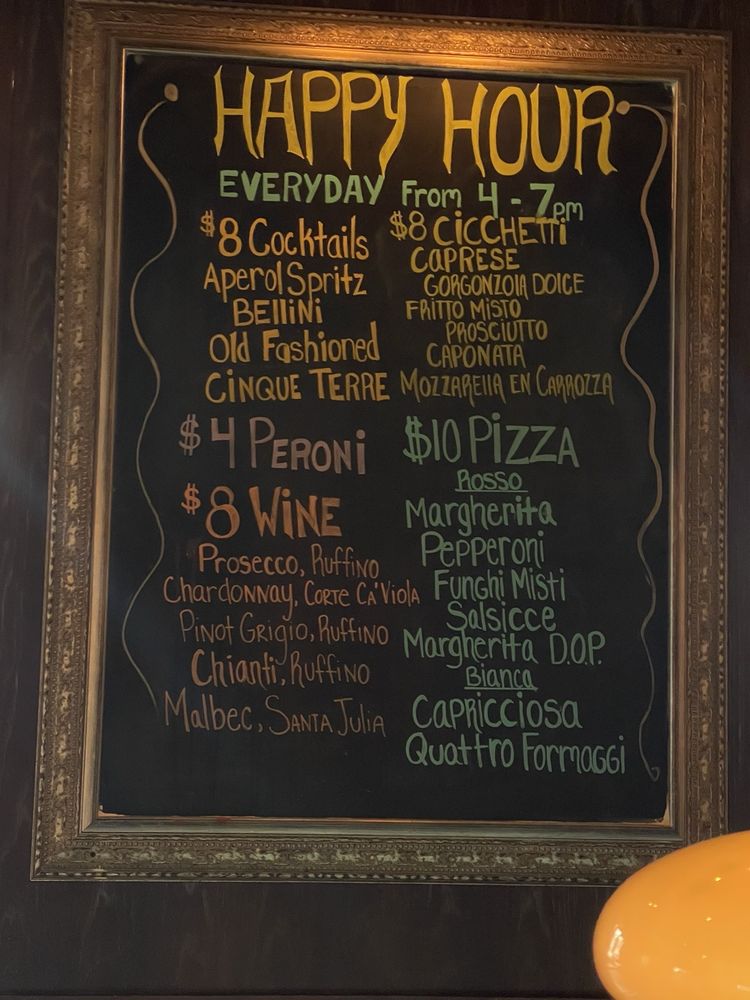 HAPPY HOUR
EVERYDAY From 4 - 7pm
$8 Cocktails
Aperol Spritz
BELLiNi
Old Fashioned
CiNQUE TERRE
$4 PERONi
$8 WiNE
Prosecco, Ruffino
Chardonnay, CORTE CA'ViOLA
Pinot Grigio, Ruffino
Chianti, Ruffino
Malbec, SANTA JULiA
$8 CiCCHETTi
CAPRESE
GORGONZOLA DOLCE
FRiTTO MiSTO
PROSCiUTTO
CAPONATA
MOZZARELLA EN CARROZZA
$10 PiZZA
Rosso
Margherita
Pepperoni
Funghi Misti
Salsicce
Margherita D.O.P.
Bianca
CAPRicciosA
QUATTRO FORMAGGi